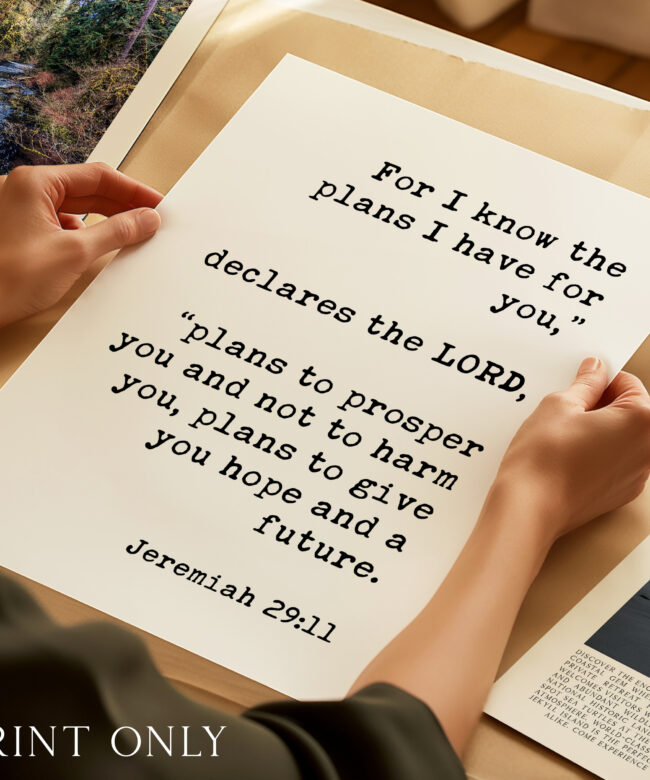 For I know the
plans I have for
you,”
declares the LORD,
“plans to prosper
you and not to harm
you, plans to give
you hope and a
future.
Jeremiah 29:11
RINT ONLY
DISCOVER THE
COASTAL GEM
PRIVATE RETREAT
WELCOMES VISITORS
AND ABUNDANT
NATIONAL HISTORIC
SPOT SEA TURTLES AT THE
ATMOSPHERE, WORLD-CLASS
JEKYLL ISLAND IS THE
ALIKE. COME EXPERIENCE